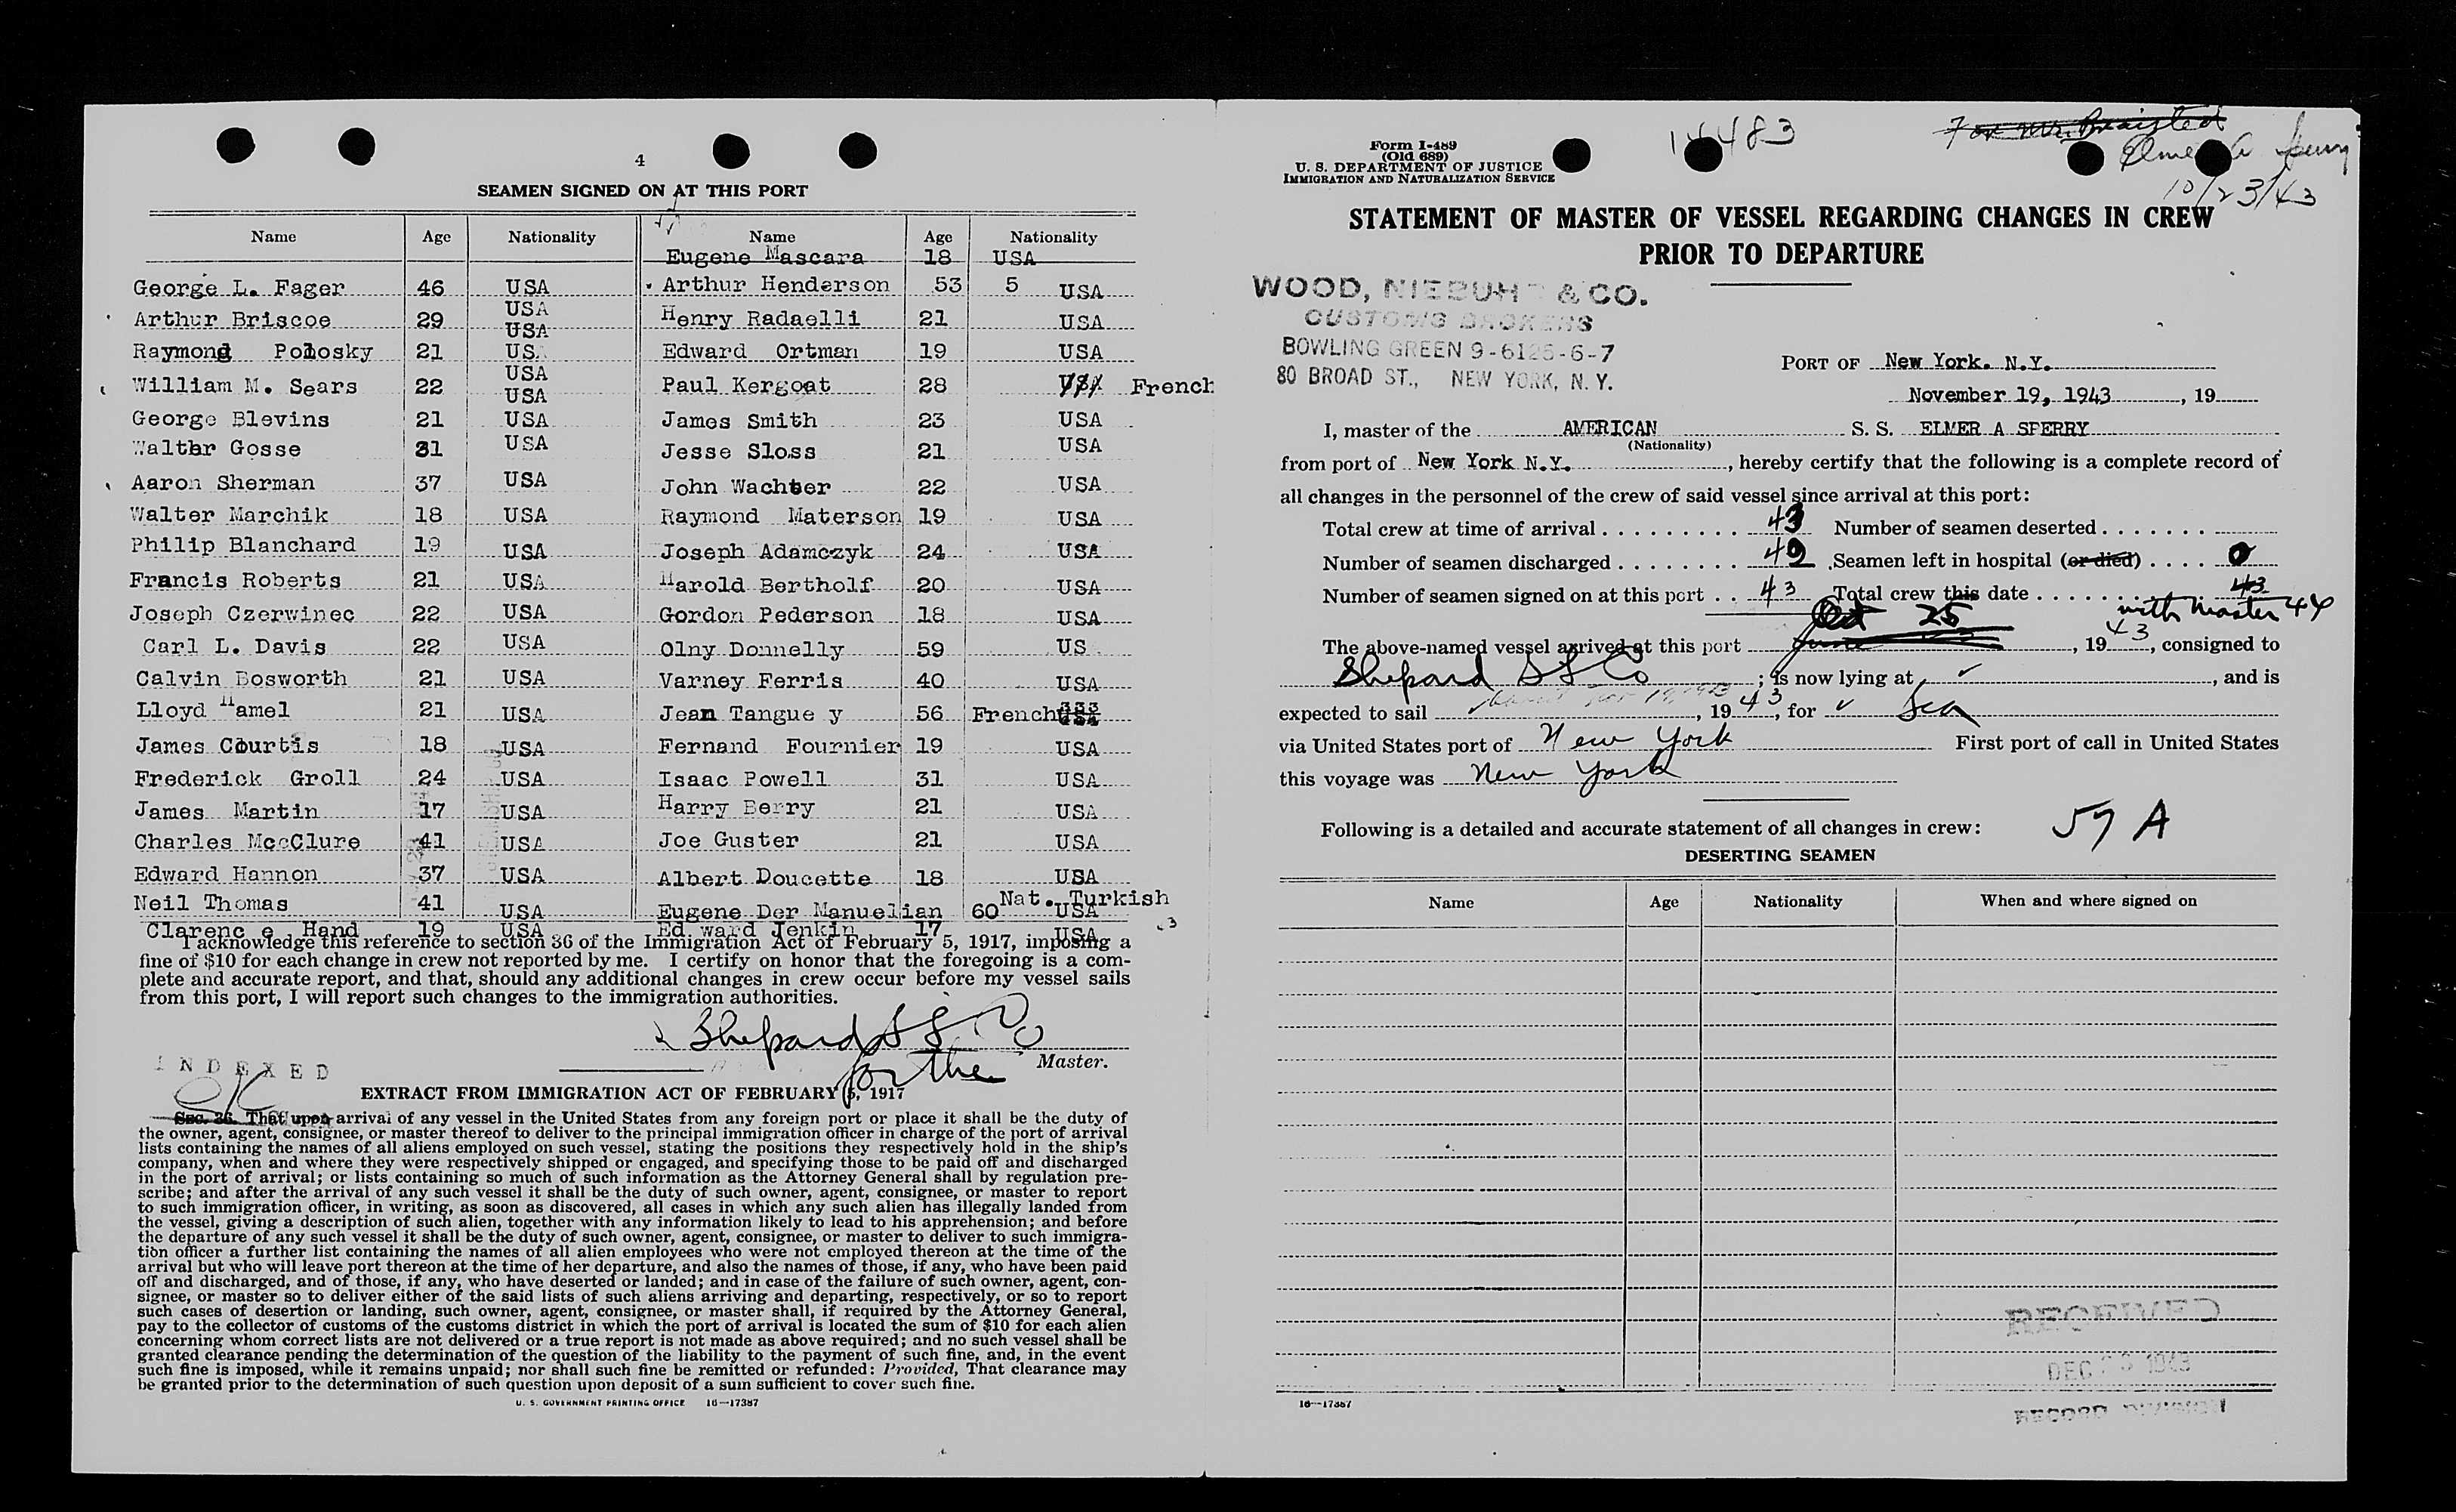 4
SEAMEN SIGNED ON AT THIS PORT
Name Age Nationality Name Age Nationality
Eugene Mascara 18 USA
George L. Fager 46 USA Arthur Henderson 53 5 USA
Arthur Briscoe 29 USA Henry Radaelli 21 USA
USA
Raymond Polosky 21 US. Edward Ortman 19 USA
USA
William M. Sears 22 Paul Kergoat 28 USA French
USA
George Blevins 21 USA James Smith 23 USA
Walter Gosse 31 USA Jesse Sloss 21 USA
Aaron Sherman 37 USA John Wachter 22 USA
Walter Marchik 18 USA Raymond Materson 19 USA
Philip Blanchard 19 USA Joseph Adamczyk 24 USA
Francis Roberts 21 USA Harold Bertholf 20 USA
Joseph Czerwinec 22 USA Gordon Pederson 18 USA
Carl L. Davis 22 USA Olny Donnelly 59 US
Calvin Bosworth 21 USA Varney Ferris 40 USA
Lloyd Hamel 21 USA Jean Tangue y 56 French
James Courtis 18 USA Fernand Fournier 19 USA
Frederick Groll 24 USA Isaac Powell 31 USA
James Martin 17 USA Harry Berry 21 USA
Charles MccClure 41 USA Joe Guster 21 USA
Edward Hannon 37 USA Albert Doucette 18 USA
Neil Thomas 41 USA Eugene Der Manuelian 60 Nat. Turkish USA
Clarenc e Hand 19 USA Ed ward Jenkin 17 USA
I acknowledge this reference to section 36 of the Immigration Act of February 5, 1917, imposing a
fine of $10 for each change in crew not reported by me. I certify on honor that the foregoing is a com-
plete and accurate report, and that, should any additional changes in crew occur before my vessel sails
from this port, I will report such changes to the immigration authorities.
Shepard S S Co
for the Master.
INDEXED
OK
EXTRACT FROM IMMIGRATION ACT OF FEBRUARY 5, 1917
Sec. 36. That upon arrival of any vessel in the United States from any foreign port or place it shall be the duty of
the owner, agent, consignee, or master thereof to deliver to the principal immigration officer in charge of the port of arrival
lists containing the names of all aliens employed on such vessel, stating the positions they respectively hold in the ship's
company, when and where they were respectively shipped or engaged, and specifying those to be paid off and discharged
in the port of arrival; or lists containing so much of such information as the Attorney General shall by regulation pre-
scribe; and after the arrival of any such vessel it shall be the duty of such owner, agent, consignee, or master to report
to such immigration officer, in writing, as soon as discovered, all cases in which any such alien has illegally landed from
the vessel, giving a description of such alien, together with any information likely to lead to his apprehension; and before
the departure of any such vessel it shall be the duty of such owner, agent, consignee, or master to deliver to such immigra-
tion officer a further list containing the names of all alien employees who were not employed thereon at the time of the
arrival but who will leave port thereon at the time of her departure, and also the names of those, if any, who have been paid
off and discharged, and of those, if any, who have deserted or landed; and in case of the failure of such owner, agent, con-
signee, or master so to deliver either of the said lists of such aliens arriving and departing, respectively, or so to report
such cases of desertion or landing, such owner, agent, consignee, or master shall, if required by the Attorney General,
pay to the collector of customs of the customs district in which the port of arrival is located the sum of $10 for each alien
concerning whom correct lists are not delivered or a true report is not made as above required; and no such vessel shall be
granted clearance pending the determination of the question of the liability to the payment of such fine, and, in the event
such fine is imposed, while it remains unpaid; nor shall such fine be remitted or refunded: Provided, That clearance may
be granted prior to the determination of such question upon deposit of a sum sufficient to cover such fine.
U. S. GOVERNMENT PRINTING OFFICE 16—17387
Form I-489
(Old 689)
U. S. DEPARTMENT OF JUSTICE
IMMIGRATION AND NATURALIZATION SERVICE
483
For Mr. Braisted
10/23/43
STATEMENT OF MASTER OF VESSEL REGARDING CHANGES IN CREW
PRIOR TO DEPARTURE
WOOD, NIEBUHR & CO.
CUSTOMS BROKERS
BOWLING GREEN 9-6125-6-7
80 BROAD ST., NEW YORK, N. Y.
PORT OF New York. N.Y.
November 19, 1943, 19
I, master of the AMERICAN S. S. ELMER A SPERRY
(Nationality)
from port of New York N.Y., hereby certify that the following is a complete record of
all changes in the personnel of the crew of said vessel since arrival at this port:
Total crew at time of arrival 43 Number of seamen deserted
Number of seamen discharged 42 Seamen left in hospital (or died) 0
Number of seamen signed on at this port 43 Total crew this date 43
with Master 44
Oct 25
The above-named vessel arrived at this port June, 1943, consigned to
Shepard S S Co; is now lying at, and is
expected to sail, 1943, for Sea
via United States port of New York First port of call in United States
this voyage was New York
Following is a detailed and accurate statement of all changes in crew: 57 A
DESERTING SEAMEN
Name Age Nationality When and where signed on
RECEIVED
DEC 1943
RECORD DIVISION
16—17387